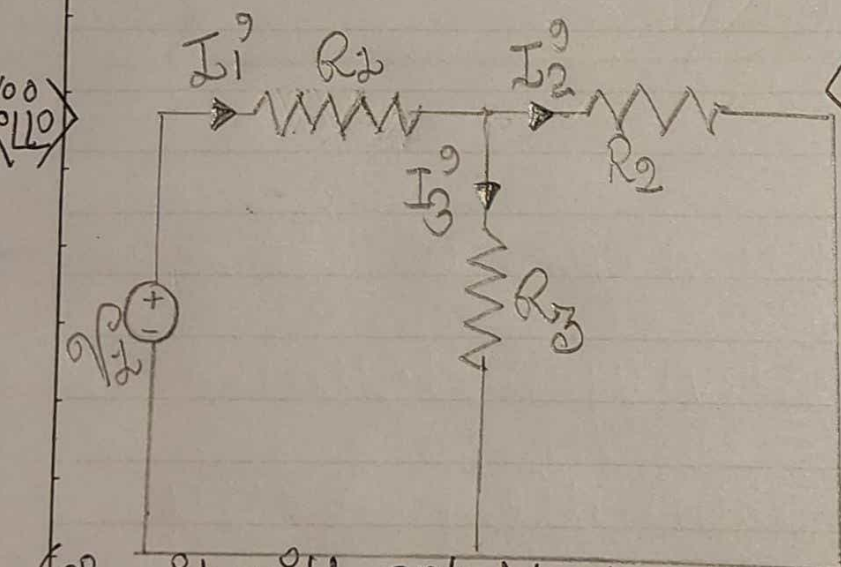 I1' R1 I2'
R2
I3'
R3
+
-
V1